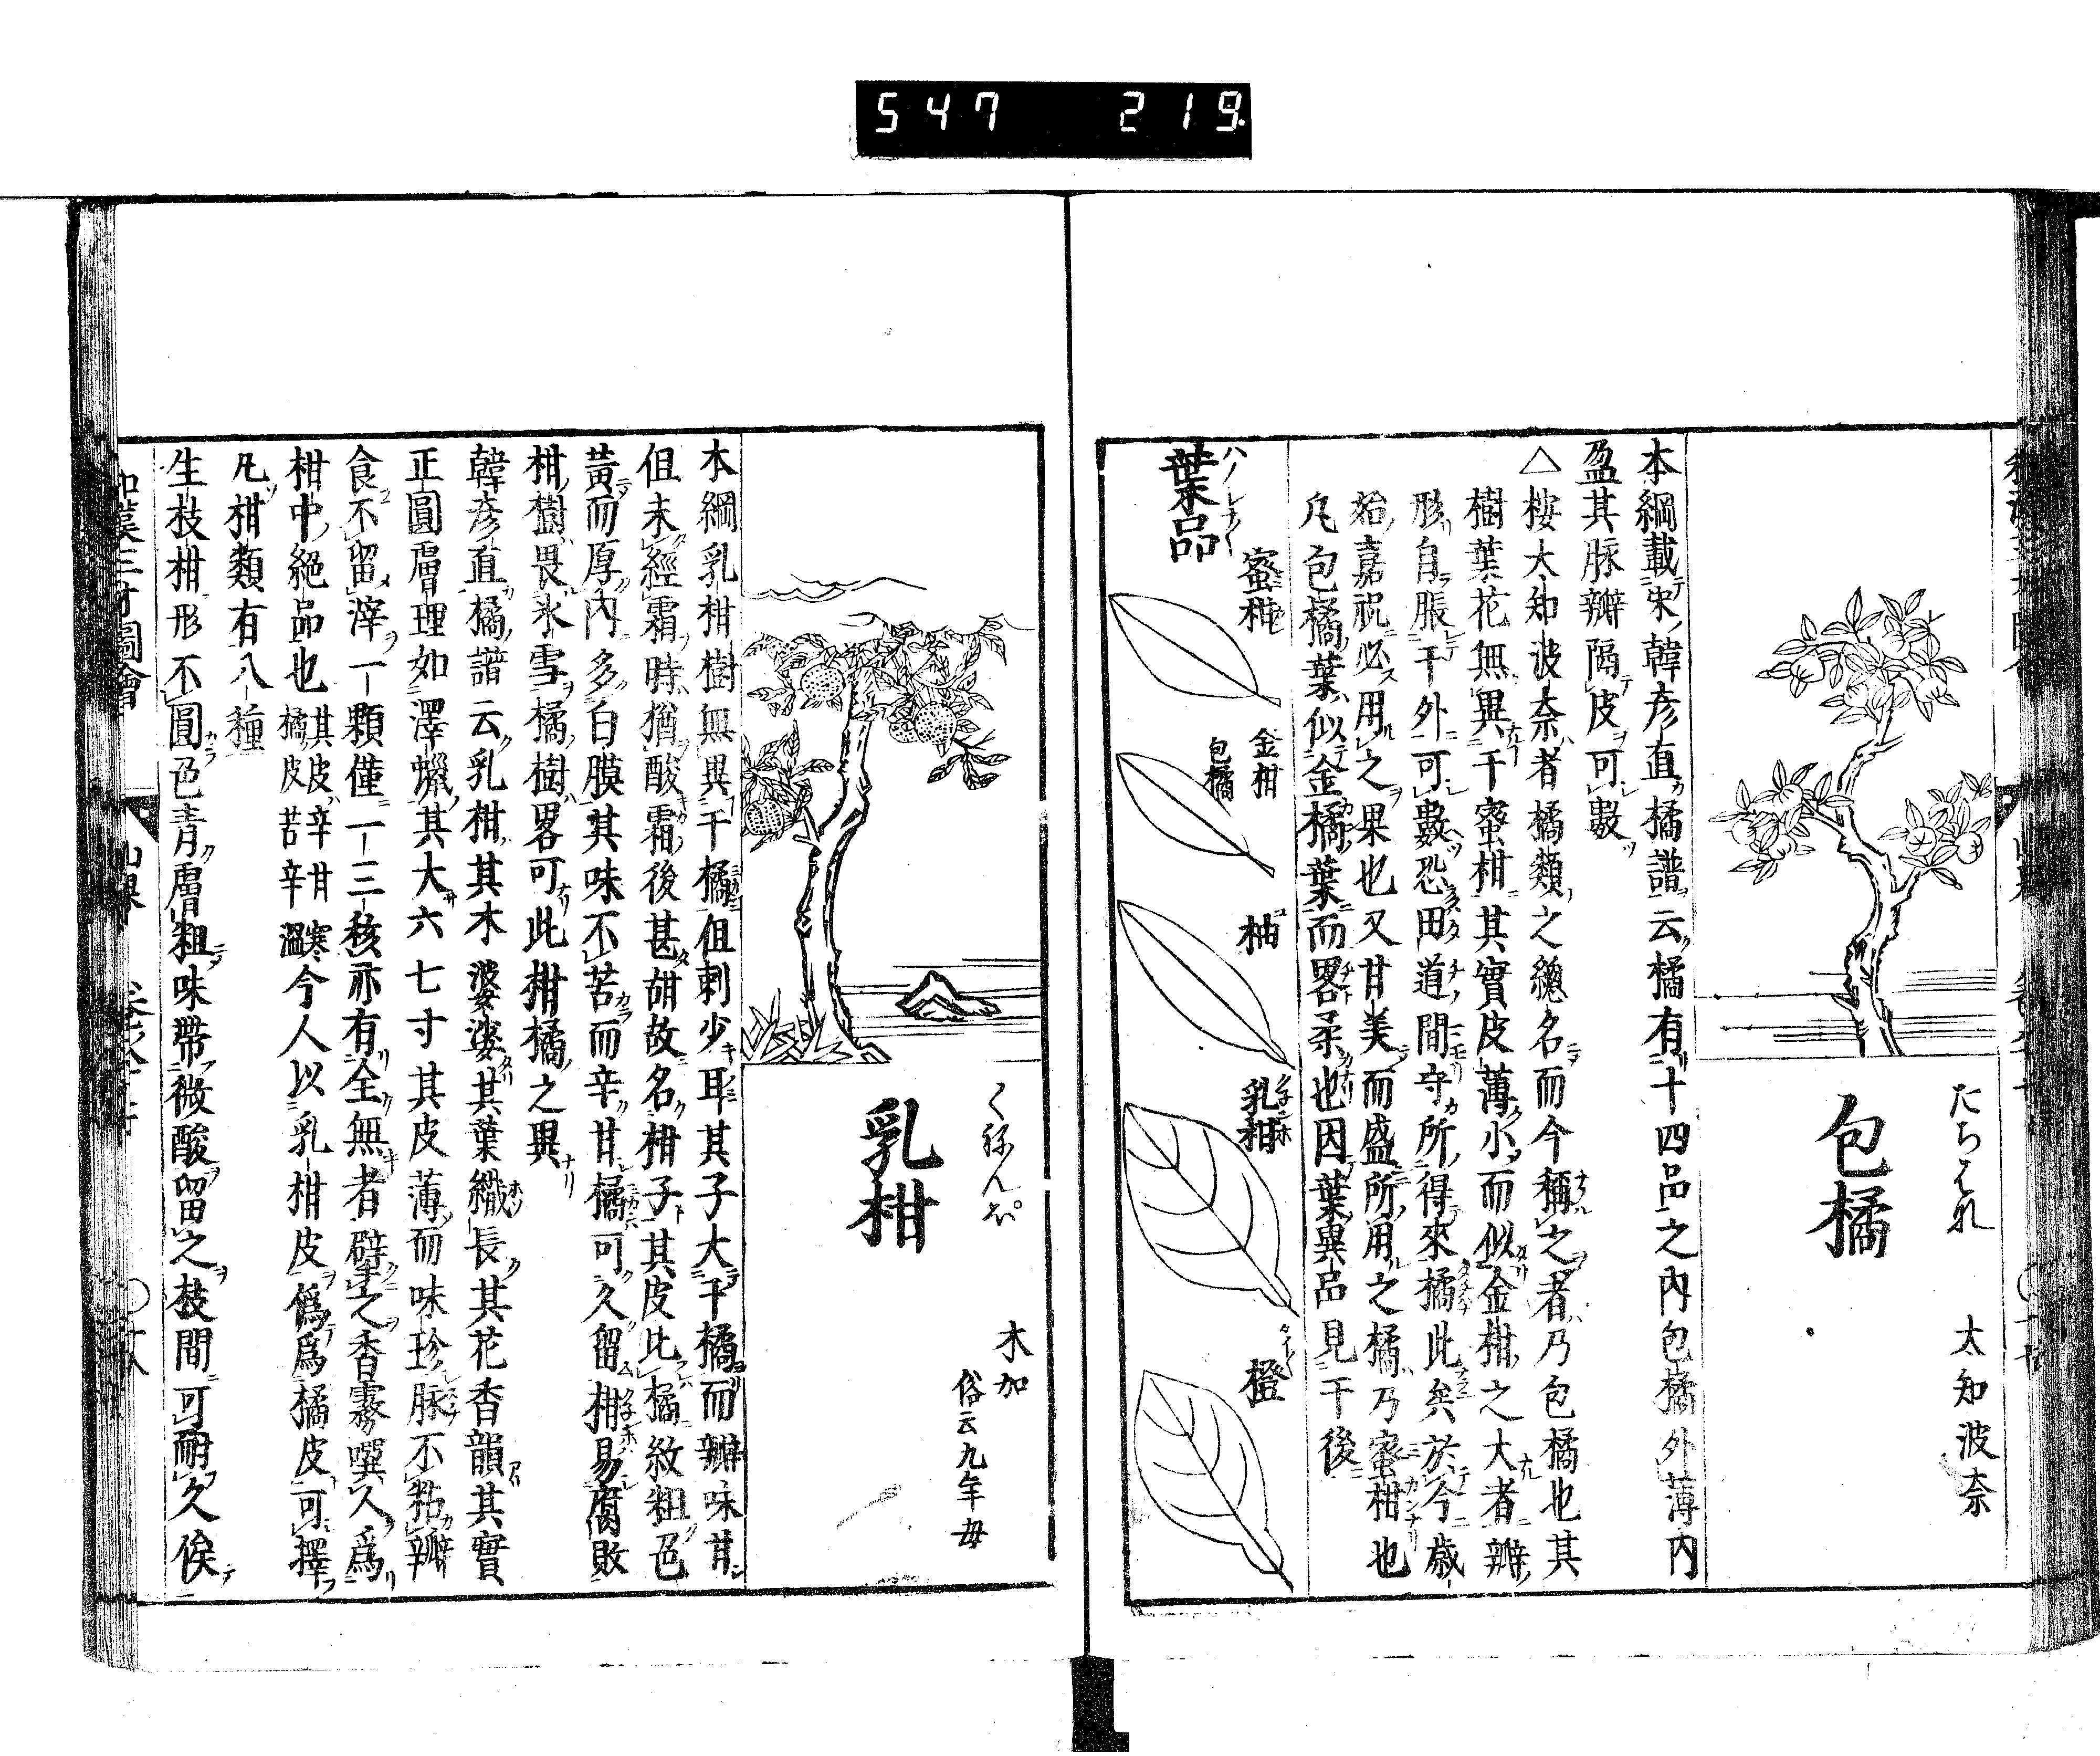 547 219
包橘
たちばな
太知波奈
本綱載宋韓彦直橘譜云橘有十四品之內包橘外薄內
盈其脉瓣隔皮可數
△按太知波奈者橘類之總名而今稱之者乃包橘也其
樹葉花無異于蜜柑其實皮薄小而似金柑之大者瓣
形自脹于外可數恐田道間守所得來橘此矣於今歲
始嘉祝必用之果也又甘美而盛所用之橘乃蜜柑也
凡包橘葉似金橘葉而畧柔也因葉異品見于後
葉品
蜜柑
金柑
包橘
柚
乳柑
橙
乳柑
くねんぼ
木加
俗云九年母
本綱乳柑樹無異于橘但刺少耳其子大于橘而瓣味甘
但未經霜時猶酸霜後甚甜故名柑子其皮比橘紋粗色
黃而厚內多白膜其味不苦而辛甘橘可久留柑易腐敗
柑樹畏氷雪橘樹畧可此柑橘之異
韓彦直橘譜云乳柑其木婆娑其葉纖長其花香韻其實
正圓膚理如澤蠟其大六七寸其皮薄而味珍脉不粘瓣
食不留滓一顆僅二三核亦有全無者擘之香霧噀人爲
柑中絕品也其皮辛甘寒橘皮苦辛溫今人以乳柑皮僞爲橘皮可擇
凡柑類有八種
生枝柑形不圓色青膚粗味帶微酸留之枝間可耐久俟